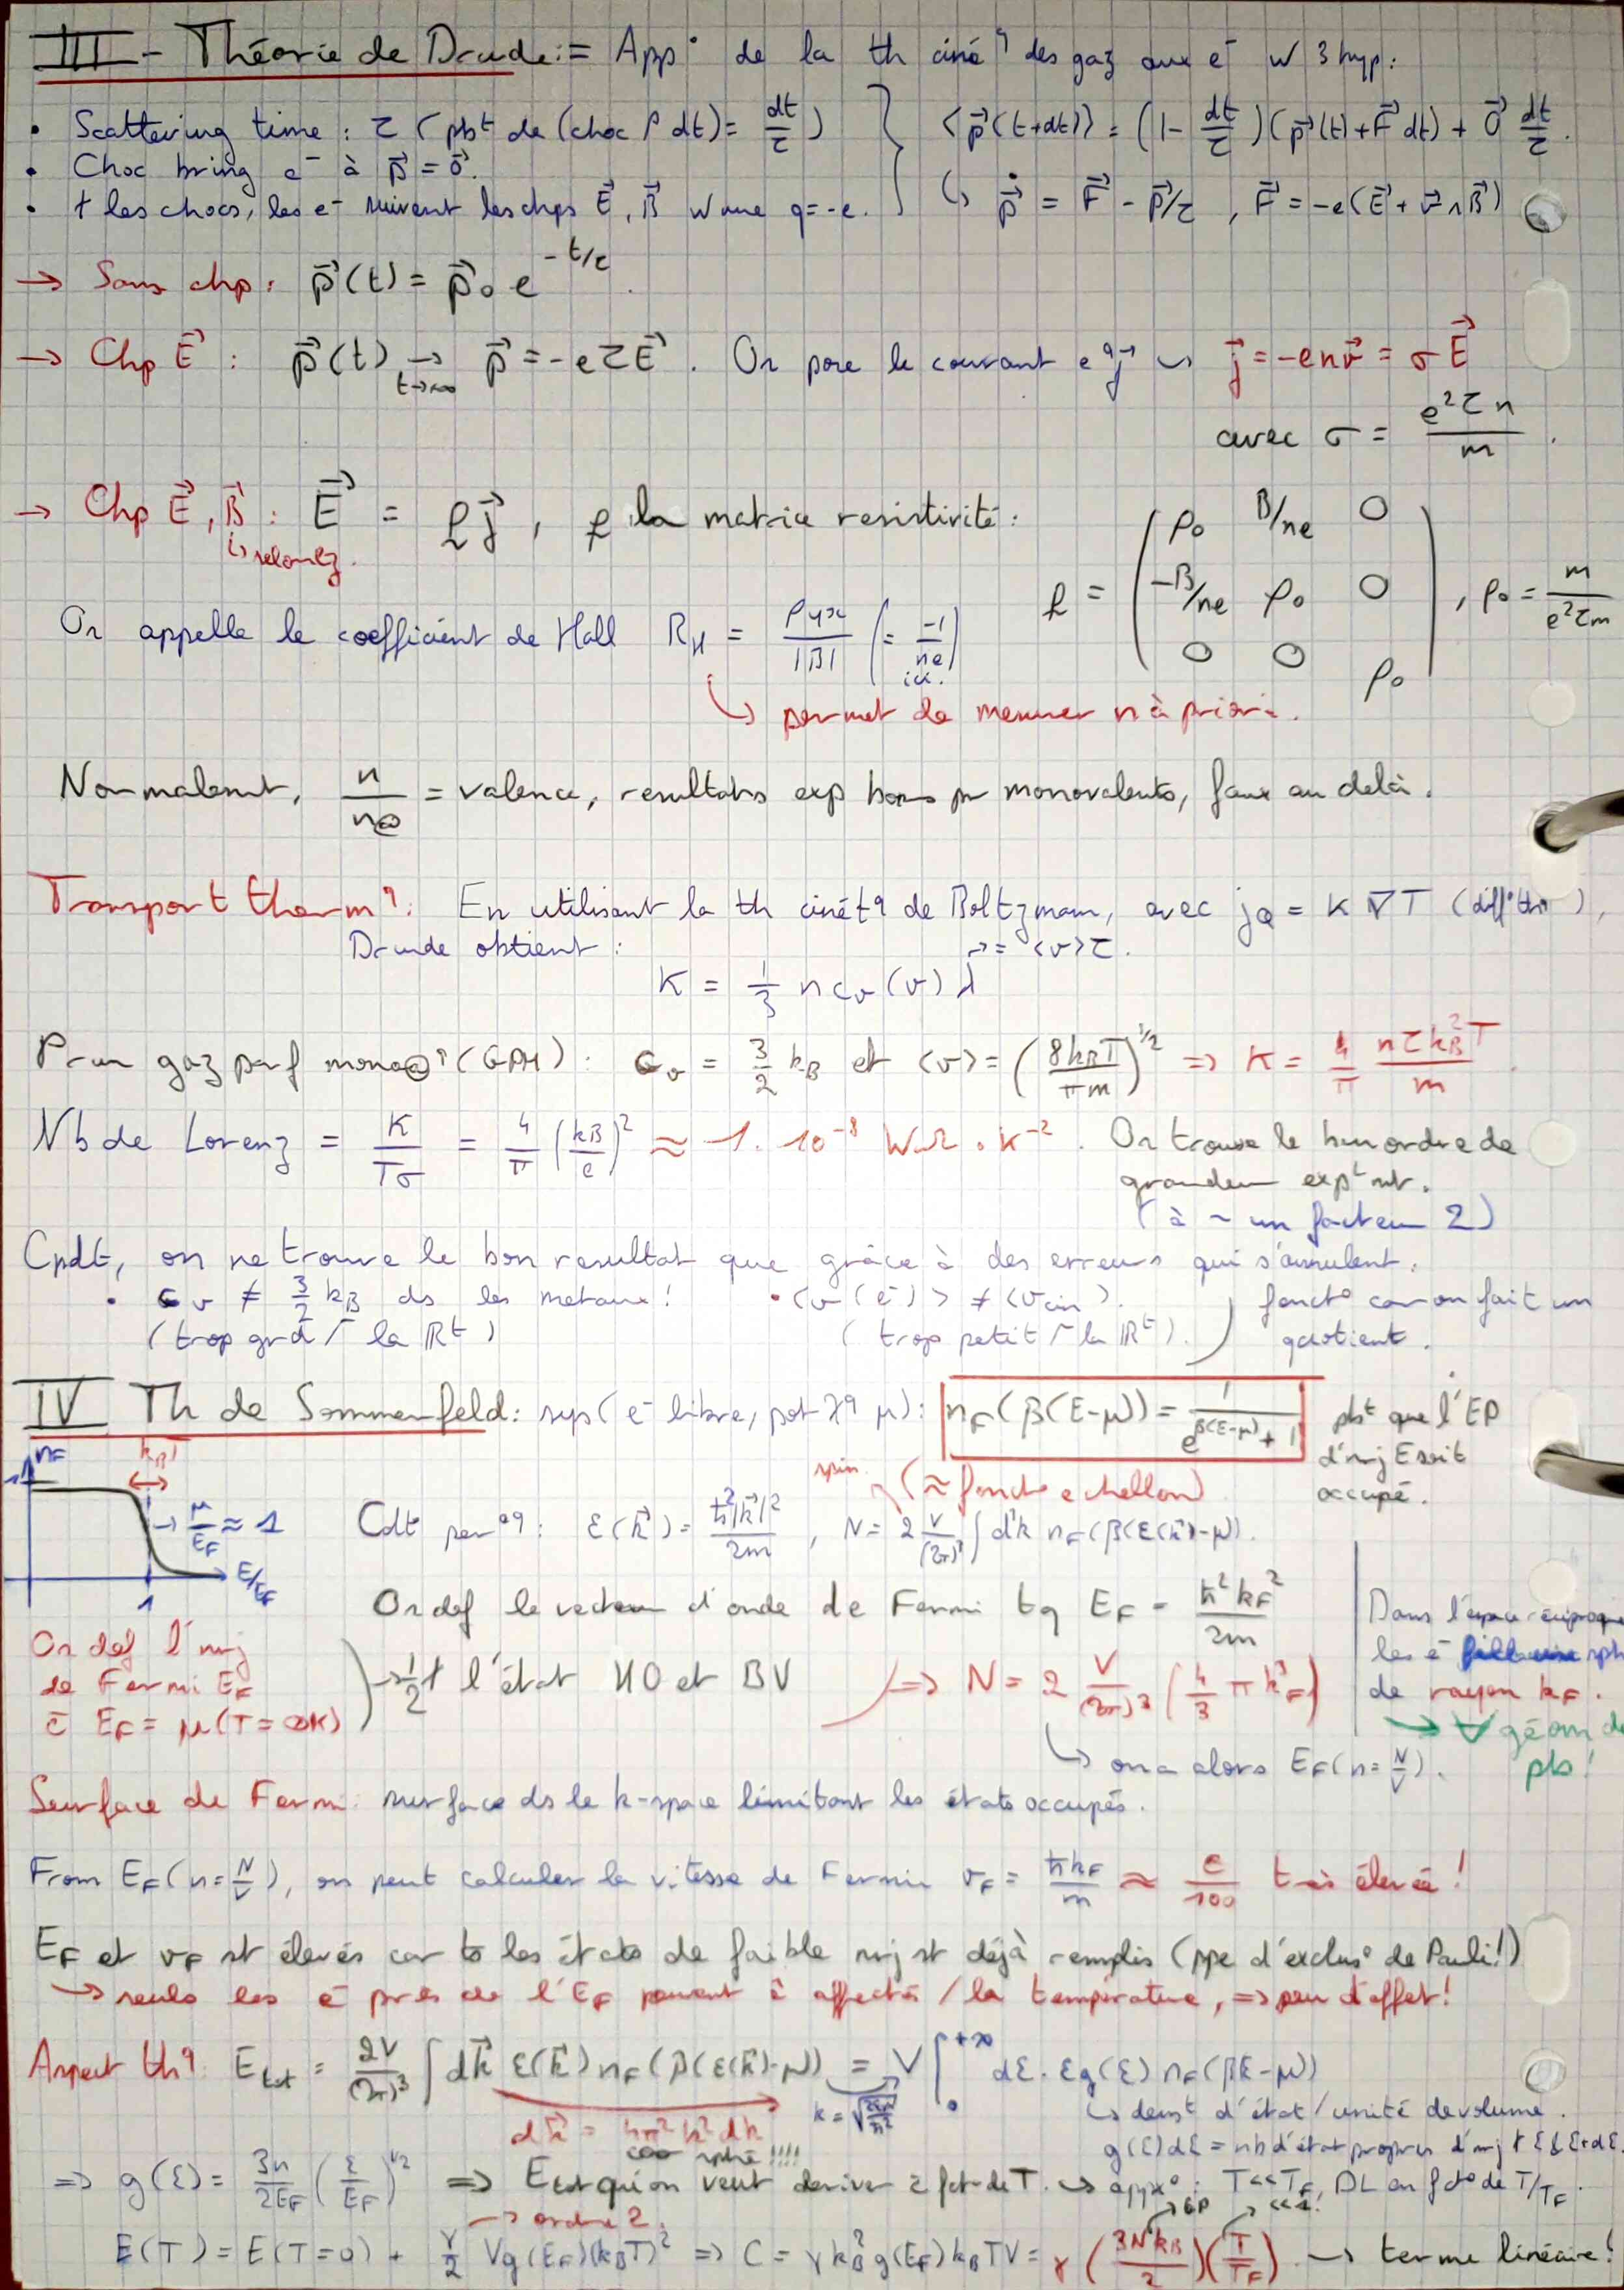 III - Théorie de Drude := App° de la th ciné q des gaz aux e- w 3 hyp:
• Scattering time : τ (pbt de (choc / dt) = dt/τ) } <p⃗(t+dt)> = (1 - dt/τ)(p⃗(t) + F⃗ dt) + 0⃗ dt/τ.
• Choc bring e- à p⃗ = 0⃗.
• † les chocs, les e- suivent les chps E⃗, B⃗ w une q=-e. ↳ ṗ⃗ = F⃗ - p⃗/τ , F⃗ = -e(E⃗ + v⃗ ∧ B⃗)
→ Sans chp : p⃗(t) = p⃗₀ e^(-t/τ).
→ Chp E⃗ : p⃗(t) →(t→∞) p⃗ = -eτE⃗. On pose le courant e q j⃗ ↳ j⃗ = -env⃗ = σE⃗
avec σ = e²τn/m.
→ Chp E⃗, B⃗ : E⃗ = ρ j⃗ , ρ la matrice resistivité :
ρ = ( ρ₀ B/ne 0
-B/ne ρ₀ 0
0 0 ρ₀ ) , ρ₀ = m/e²τm
On appelle le coefficient de Hall R_H = ρyx/|B| (= -1/ne) ici.
↳ permet de mesurer n à priori.
Normalemt, n/n@ = valence, resultats exp bons pr monovalents, faux au delà.
Transport therm q : En utilisant la th cinétq de Boltzmann, avec jQ = K ∇T (diff° th),
Drude obtient : = <v>τ.
K = 1/3 n cv <v> λ
Pr un gaz parf mono@ q (GPM) : cv = 3/2 kB et <v> = (8kBT/πm)^1/2 ⇒ K = 4/π nτkB²T/m.
Nb de Lorenz = K/Tσ = 4/π (kB/e)² ≈ 1. 10^-8 W.Ω.K^-2. On trouve le bon ordre de
grandeur exptmt.
(à ~ un facteur 2)
Cpdt, on ne trouve le bon resultat que grâce à des erreurs qui s'annulent.
• cv ≠ 3/2 kB ds les metaux! • <v(e-)> ≠ <v cin>. fonct° car on fait un
(trop grd / la Rt) (trop petit / la Rt). quotient.
IV Th de Sommerfeld : sys (e- libre, pot χq μ) : nF(β(E-μ)) = 1/(e^β(E-μ) + 1) pbt que l'EP
d'nrj E soit
occupé.
nF
kBT
1
→ μ/EF ≈ 1
E/EF
1
spin (≈ fonct° echellon)
Cdt per°q : ε(k⃗) = ħ²|k⃗|²/2m , N = 2 V/(2π)³ ∫ d⃗k nF(β(ε(k⃗)-μ)).
On def le vecteur d'onde de Fermi tq EF = ħ²kF²/2m
On def l'nrj
de Fermi EF
c EF = μ(T=0K)
→ 1/2 † l'état HO et BV ⇒ N = 2 V/(2π)³ (4/3 π kF³)
Dans l'espace réciproque
les e- sph
de rayon kF.
→ ∀ géom de
pb!
↳ on a alors EF(n = N/V).
Surface de Fermi : surface ds le k-space limitant les états occupés.
From EF(n = N/V), on peut calculer la vitesse de Fermi vF = ħkF/m ≈ c/100 très élevée!
EF et vF st élevés car ts les états de faible nrj st déjà remplis (ppe d'exclus° de Pauli!)
→ seuls les e- près de l'EF peuvent ê affectés / la température, ⇒ peu d'effet!
Aspect thq : Etot = 2V/(2π)³ ∫ dk⃗ ε(k⃗) nF(β(ε(k⃗)-μ)) = V ∫₀^+∞ dε. εg(ε) nF(βE-μ)
dk⃗ = 4π² k² dk
coo sphé !!!!
↳ denst d'état / unité de volume.
g(ε)dε = nb d'état propres d'nrj † ε & ε+dε.
⇒ g(ε) = 3n/2EF (ε/EF)^1/2 ⇒ Etot qu'on veut deriver = fct de T. ↳ appx° : T<<TF, DL en fct° de T/TF.
→ ordre 2. GP <<1!
E(T) = E(T=0) + γ/2 Vg(EF)(kBT)² ⇒ C = γkB²g(EF)kBTV = γ (3NkB/2)(T/TF) → terme linéaire!